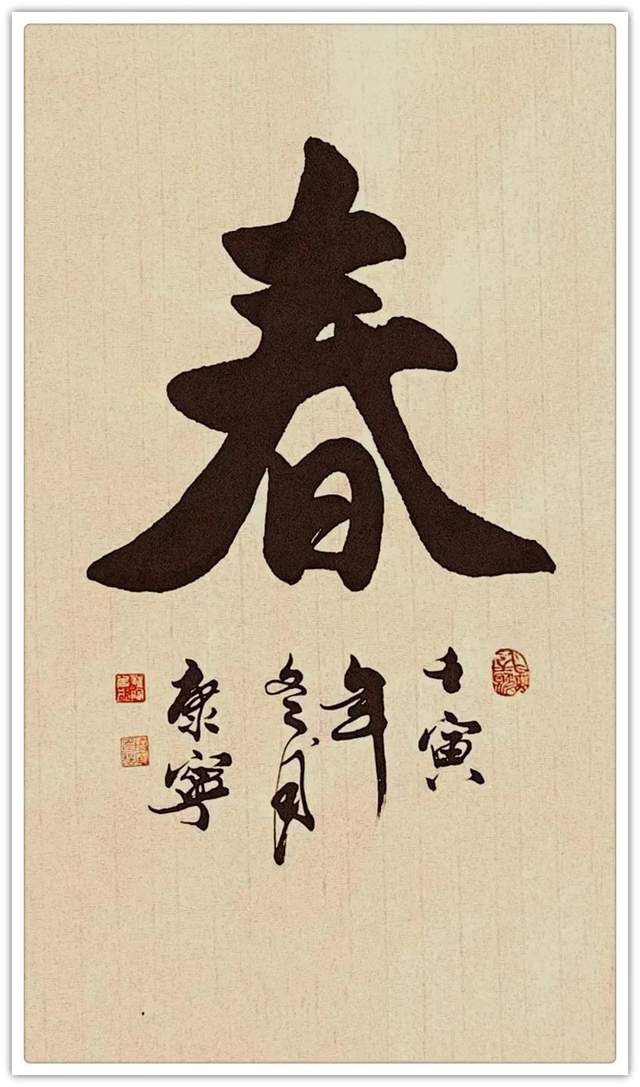 春
壬寅
年
冬月
康寧